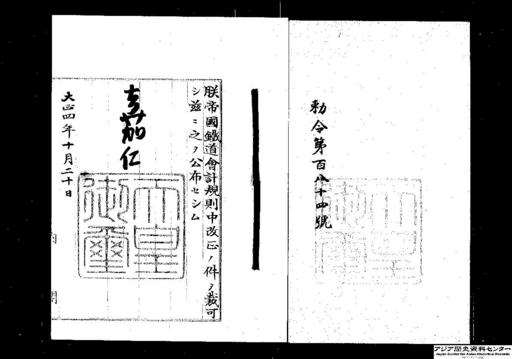 朕帝國鐵道會計規則中改正ノ件ヲ裁可
シ茲ニ之ヲ公布セシム
嘉仁
天皇
御璽
大正四年十月二十日
内
閣
勅令第百八十四號
天皇
御璽
アジア歴史資料センター
Japan Center for Asian Historical Records